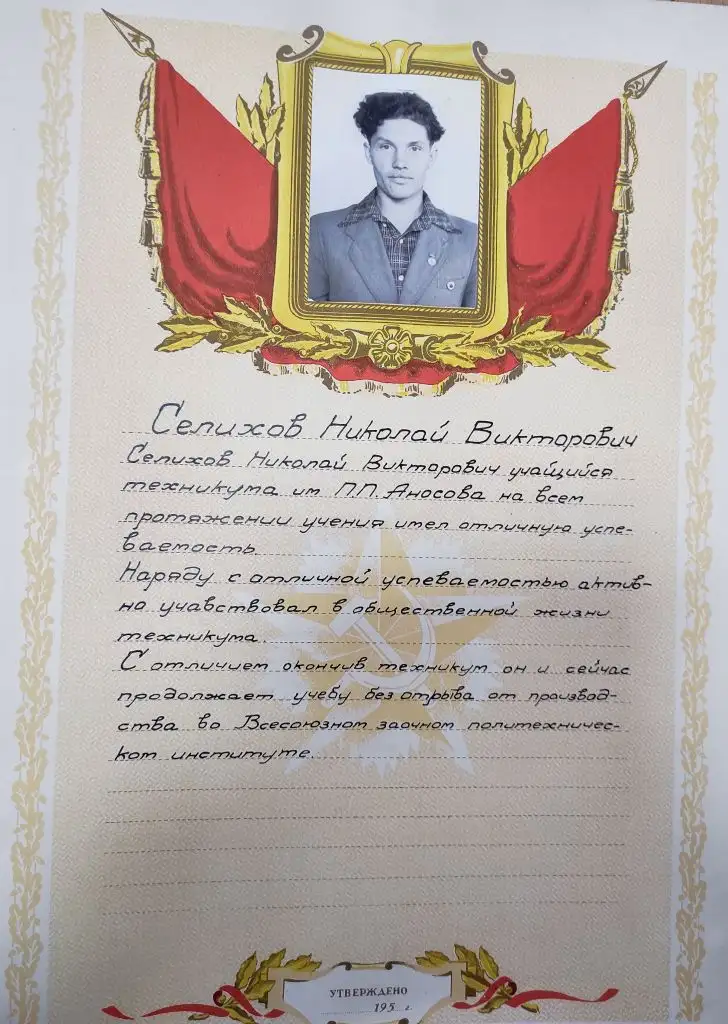 Селихов Николай Викторович
Селихов Николай Викторович учащийся
техникума им П.П. Аносова на всем
протяжении учения имел отличную успе-
ваемость.
Наряду с отличной успеваемостью актив-
но учавствовал в общественной жизни
техникума.
С отличием окончив техникум он и сейчас
продолжает учебу без отрыва от производ-
ства во Всесоюзном заочном политехничес-
ком институте.
УТВЕРЖДЕНО
195 г.